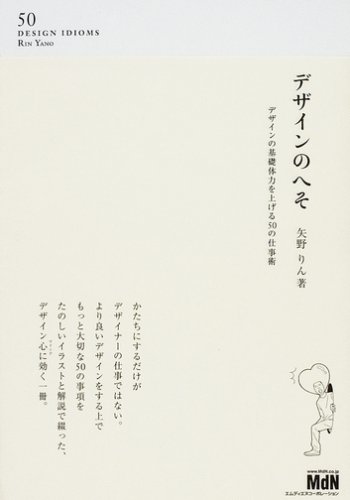 50
DESIGN IDIOMS
RIN YANO
デザインのへそ
デザインの基礎体力を上げる50の仕事術
矢野 りん 著
かたちにするだけが
デザイナーの仕事ではない。
より良いデザインをする上で
もっと大切な50の事項を
たのしいイラストと解説で綴った、
デザイン心に効く一冊。
www.MdN.co.jp
MdN
エムディエヌコーポレーション